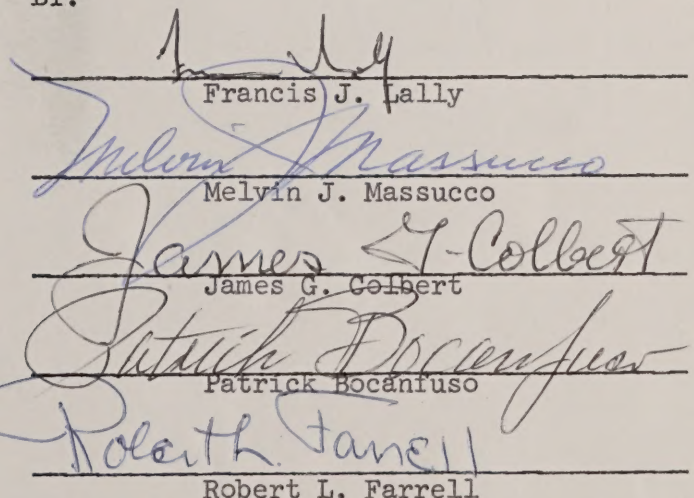 BY:
Francis J. Lally
Melvin J. Massucco
Melvin J. Massucco
James G. Colbert
James G. Colbert
Patrick Bocanfuso
Patrick Bocanfuso
Robert L. Farrell
Robert L. Farrell